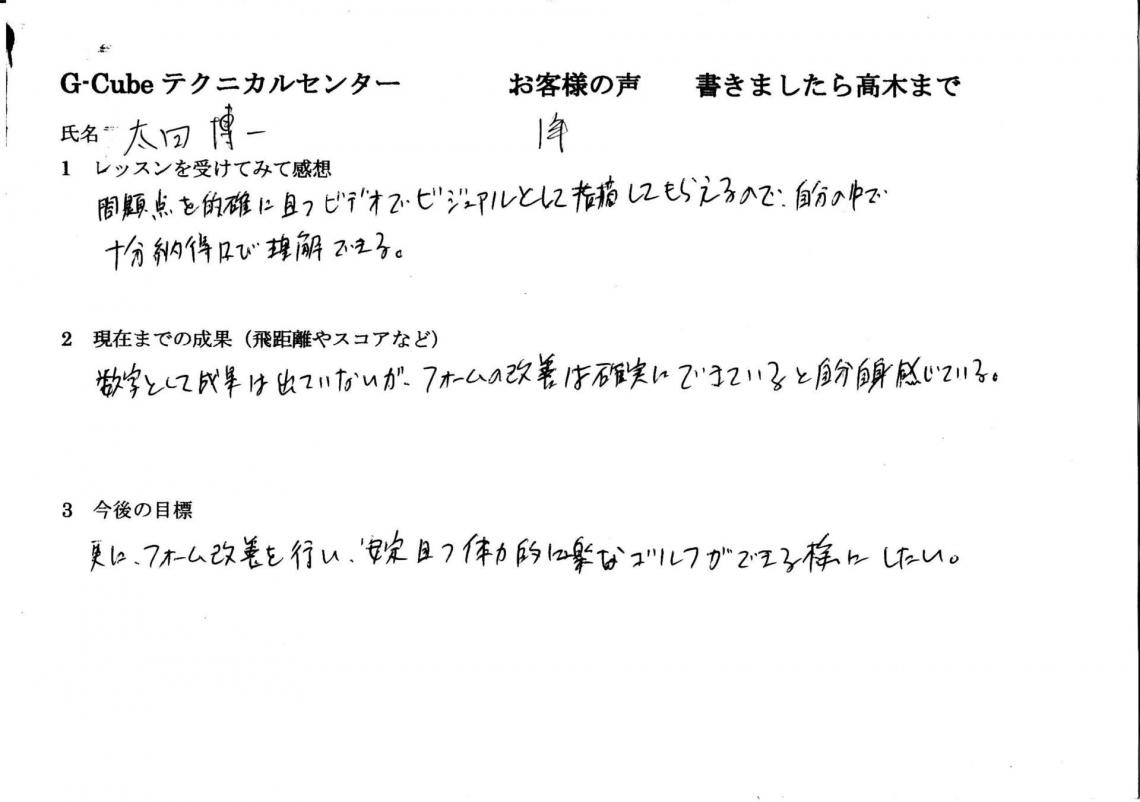 G-Cube テクニカルセンター お客様の声 書きましたら高木まで
氏名 太田 博一
1 レッスンを受けてみて感想
問題点を的確に且つビデオでビジュアルとして指摘してもらえるので、自分の中で
十分納得及び理解できる。
2 現在までの成果（飛距離やスコアなど）
数字として成果は出ていないが、フォームの改善は確実にできていると自分自身感じている。
3 今後の目標
更に、フォーム改善を行い、安定且つ体力的に楽なゴルフができる様にしたい。